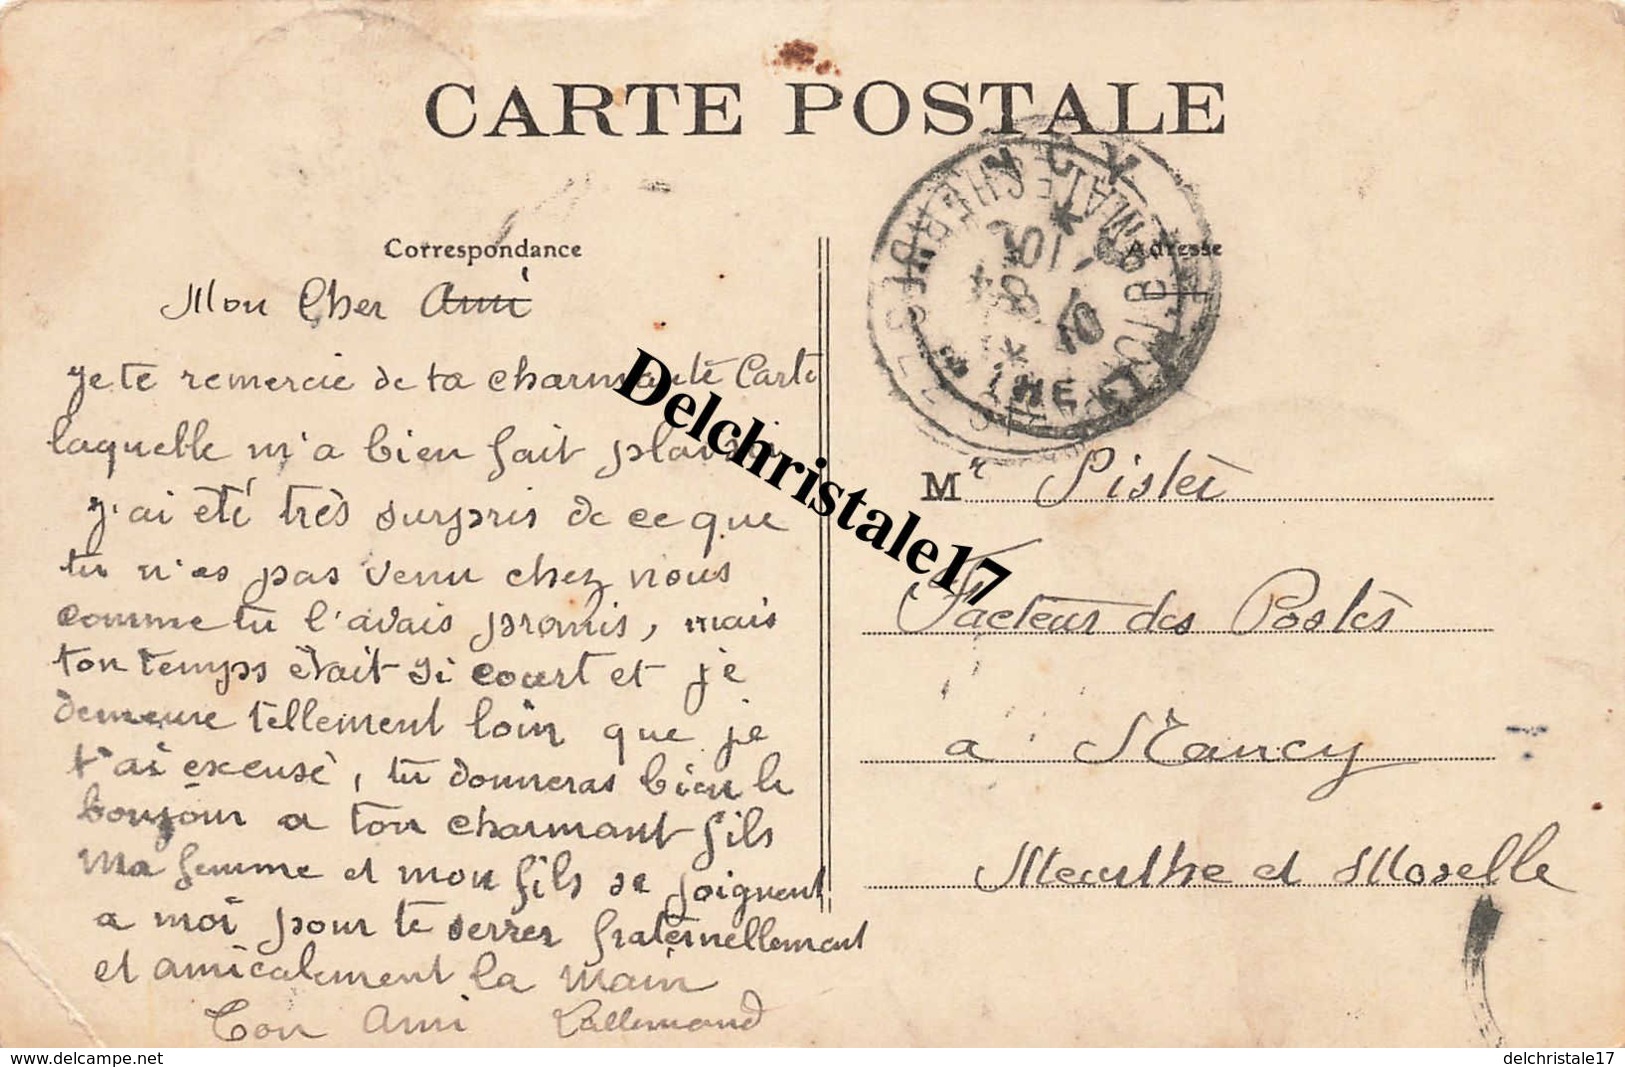 CARTE POSTALE
Correspondance
Adresse
Mon Cher Ami
Je te remercie de ta charmante Carte
laquelle m'a bien fait plaisir
j'ai été très surpris de ce que
tu n'es pas venu chez nous
comme tu l'avais promis, mais
ton temps était si court et je
demeure tellement loin que je
t'ai excusé, tu donneras bien le
bonjour a ton charmant fils
Ma femme et mon fils se joignent
a moi pour te serrer fraternellement
et amicalement la main
Ton Ami Lallemand
Mr Pister
Facteur des Postes
a Nancy
Meurthe et Moselle
Delchristale17
www.delcampe.net
delchristale17